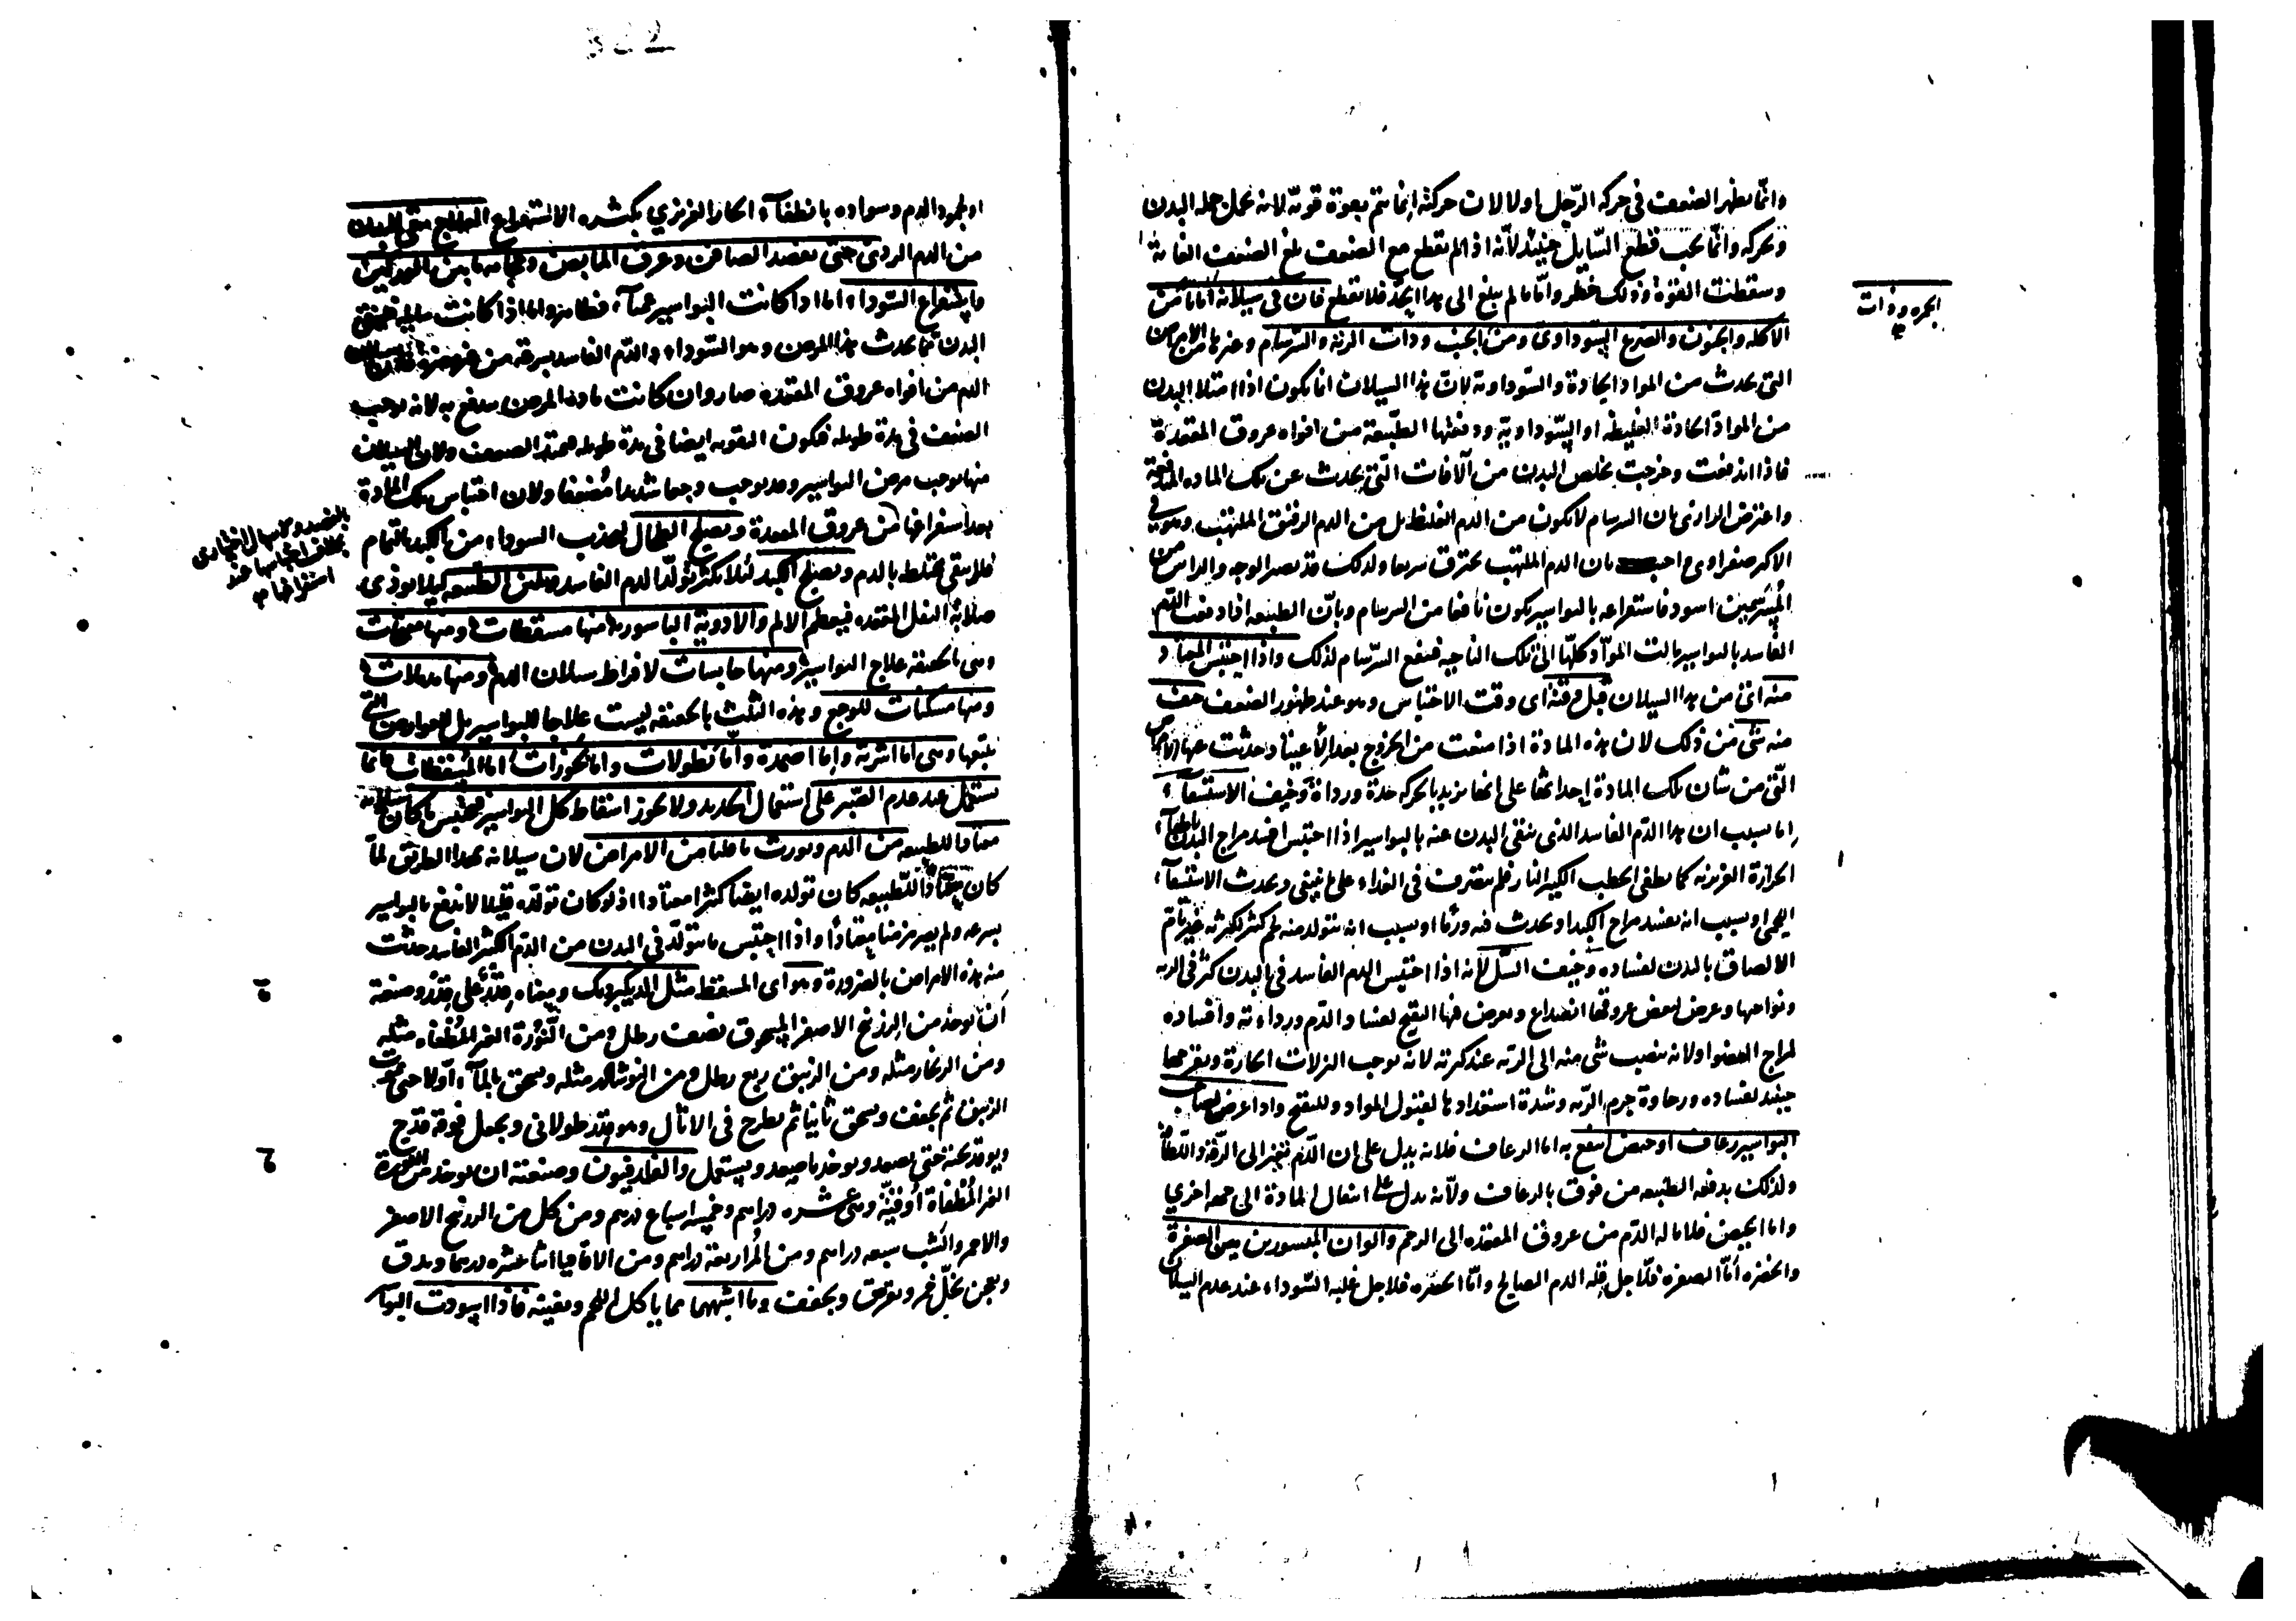 وانما يظهر الضعف في حركة الرجل اولا لان حركته انما تتم بقوة قوية لانه يحمل جملة البدن
وتحركه وانما يجب قطع السايل حينئذ لانه اذا لم يقطع مع الضعف بلغ الضعف الغاية
وسقطت القوة وذلك خطر واما ما لم يبلغ الى هذا الحد فلا يقطع فان في سيلانه امانا من
الاكلة والجنون والصرع السوداوي ومن الجنب وذات الرئة والسرسام وغيرها من الامراض
الجمرة وذات
التي تحدث من المواد الحادة والسوداوية لان هذا السيلان انما يكون اذا امتلا البدن
من المواد الحادة الغليظة او السوداوية ودفعتها الطبيعة من افواه عروق المقعدة
فاذا اندفعت وخرجت تخلص البدن من الآفات التي تحدث عن تلك المادة
واعترض الرازي بان السرسام لا يكون من الدم الغليظ بل من الدم الرقيق الملتهب وهو في
الاكثر صفراوي واجيب بان الدم الملتهب يحترق سريعا ولذلك قد يصير الوجه والراس من
المبرسمين اسود فاستفراغه بالبواسير يكون نافعا من السرسام وبان الطبيعة اذا دفعت الدم
الفاسد بالبواسير مالت المواد كلها الى تلك الناحية فينفع السرسام لذلك واذا احتبس المعتاد
منه اي من هذا السيلان قبل وقته اي وقت الاحتباس وهو عند ظهور الضعف خيف
منه شئ من ذلك لان هذه المادة اذا منعت من الخروج بعد حدثت عنها الامراض
التي من شان تلك المادة احداثها على انها تزيد بالحركة حدة ورداءة وخيف الاستسقاء
اما بسبب ان هذا الدم الفاسد الذي ينقى البدن عنه بالبواسير اذا احتبس افسد مزاج البدن
الحرارة الغريزية كما يطفئ الحطب الكثير النار فلم يتصرف في الغذاء على ما ينبغي ويحدث الاستسقاء
اللحمي او بسبب انه يفسد مزاج الكبد او يحدث فيه ورما او بسبب انه يتولد منه لحم كثير لكثرته غير تام
الالصاق بالبدن لفساده وخيف السل لانه اذا احتبس الدم الفاسد في البدن كثر في الرئة
ونواحيها وعرض لبعض عروقها انصداع وعرض فيها التقيح لفساد الدم ورداءته وافساده
لمزاج العضو او لانه ينصب شئ منه الى الرئة عند كثرته لانه يوجب النزلات الحارة ويقرحها
حينئذ لفساده ورخاوة جرم الرئة وشدة استعدادها لقبول المواد وللتقيح واذا عرض لصاحب
البواسير رعاف او حيض انتفع به اما الرعاف فلانه يدل على ان الدم يتغير الى الرقة واللطافة
ولذلك يدفعه الطبيعة من فوق بالرعاف ولانه يدل على انتقال المادة الى جهة اخرى
واما الحيض فلامالة الدم من عروق المقعدة الى الرحم والوان المبسورين بين الصفرة
والخضرة اما الصفرة فلاجل قلة الدم الصالح واما الخضرة فلاجل غلبة السوداء عند عدم السيلان
او لجمود الدم وسواده بانطفاء الحار الغريزي بكثرة الاستفراغ العلاج ينقى البدن
من الدم الردئ حتى بفصد الصافن وعرق المابض وحجامة ما بين الوركين
وباستفراغ السوداء اما اذا كانت البواسير عميا فظاهر واما اذا كانت سايلة فينقى
البدن مما يحدث هذا المرض وهو السوداء والدم الفاسد بسرعة من غير ضرر
الدم من افواه عروق المقعدة ضار وان كانت مادة المرض يندفع به لانه يوجب
الضعف في مدة طويلة فيكون التقوية ايضا في مدة طويلة فيمتد الضعف ولان السيلان
منها يوجب مرض البواسير وقد يوجب وجعا شديدا مضعفا ولان احتباس تلك المادة
بعد استفراغها من عروق المقعدة ويصلح الطحال ليجذب السوداء من الكبد بالتمام
بالفصد والاسهال الاختياري
بخلاف احتباسها عند
استفراغها
فلا يبقى مختلط بالدم ويصلح الكبد لئلا يكثر تولد الدم الفاسد ويلين الطبيعة كيلا يوذي
صلابة الثفل المقعدة فيعظم الالم والادوية الباسورية منها مسقطات ومنها مجففات
وهي بالحقيقة علاج البواسير ومنها حابسات لافراط سيلان الدم ومنها مدملات
ومنها مسكنات للوجع وهذه الثلث بالحقيقة ليست علاجا للبواسير بل للعوارض التي
تتبعها وهي اما اشربة واما اضمدة واما نطولات واما بخورات اما المسقطات فانما
يستعمل عند عدم الصبر على استعمال الحديد ولا يجوز اسقاط كل البواسير فيحتبس ما كان سيلانه
معتادا للطبيعة من الدم ويورث ما قلنا من الامراض لان سيلانه بهذا الطريق لما
كان معتادا للطبيعة كان تولده ايضا كثيرا معتادا اذ لو كان تولده قليلا لاندفع بالبواسير
بسرعة ولم يصر مزمنا معتادا واذا احتبس ما يتولد في البدن من الدم الكثير الفاسد حدثت
منه هذه الامراض بالضرورة وهو اي المسقط مثل الديكبرديك ومعناه قدر على قدر وصنعته
ان يوخذ من الزرنيخ الاصفر المسحوق نصف رطل ومن النورة الغير المطفاة مثليه
ومن الزنجار مثله ومن الزيبق ربع رطل ومن النوشادر مثله ويسحق بالماء اولا حتى يموت
الزيبق ثم يجفف ويسحق ثانيا ثم يطرح في الاثال وهو قدر طولاني ويجعل فوقه قدح
ويوقد تحته حتى يصعد ويوخذ ما صعد ويستعمل والفلدفيون وصنعته ان يوخذ من النورة
الغير المطفاة اوقية وهي عشرة دراهم وخمسة اسباع درهم ومن كل من الزرنيخ الاصفر
والاحمر والشب سبعة دراهم ومن المر اربعة دراهم ومن الاقاقيا اثنا عشرة درهما ويدق
ويعجن بخل خمر ويقرص ويجفف وما اشبههما مما ياكل اللحم ويفنيه فاذا اسودت البوا